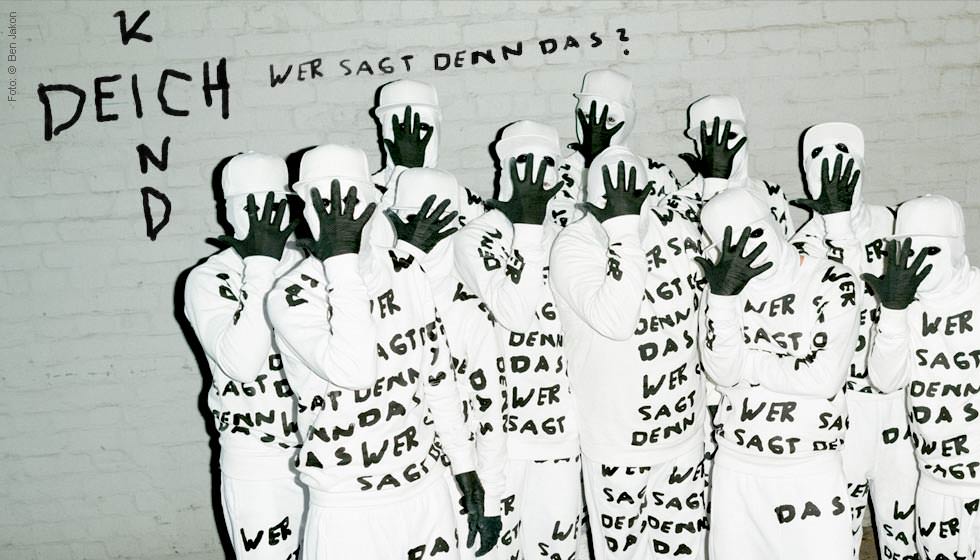 Foto: © Ben Jakon
K
DEICH
N
D
WER SAGT DENN DAS?
WER
SAGT
DENN
DAS
WER
SAGT
DENN
WER
SAGT
WER
SAGT
DAS
WER
SAGT
DENN
DAS
WER
SAGT
WER
DENN
DAS
WER
SAGT
WER
SAGT
DENN
DAS
WER